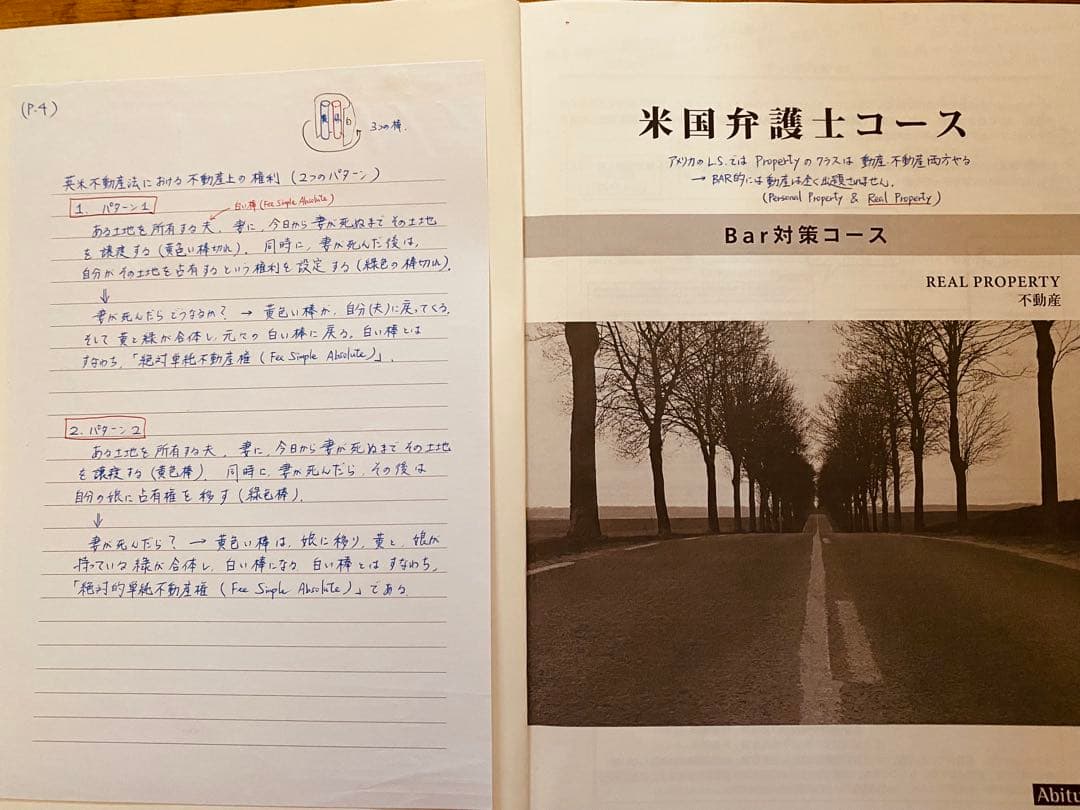 (P.4)
3つの棒.
英米不動産法における不動産上の権利 (2つのパターン)
白い棒 (Fee Simple Absolute)
1. パターン1
ある土地を所有する夫、妻に、今日から妻が死ぬまでその土地
を譲渡する (黄色い棒切れ). 同時に、妻が死んだ後は、
自分がその土地を占有するという権利を設定する (緑色の棒切れ).
⇓
妻が死んだらどうなるか? → 黄色い棒が、自分(夫)に戻ってくる.
そして黄と緑が合体し、元々の白い棒に戻る. 白い棒とは
すなわち、「絶対単純不動産権 (Fee Simple Absolute)」.
2. パターン2
ある土地を所有する夫、妻に、今日から妻が死ぬまでその土地
を譲渡する (黄色棒). 同時に、妻が死んだら、その後は
自分の娘に占有権を移す (緑色棒).
⇓
妻が死んだら? → 黄色い棒は、娘に移り、黄と、娘が
持っている緑が合体し、白い棒になる. 白い棒とはすなわち、
「絶対的単純不動産権 (Fee Simple Absolute)」である.
米国弁護士コース
アメリカのL.S.では Propertyのクラスは動産・不動産両方やる
→ BAR的には動産は全く出題されません.
(Personal Property & Real Property)
Bar対策コース
REAL PROPERTY
不動産
Abitu